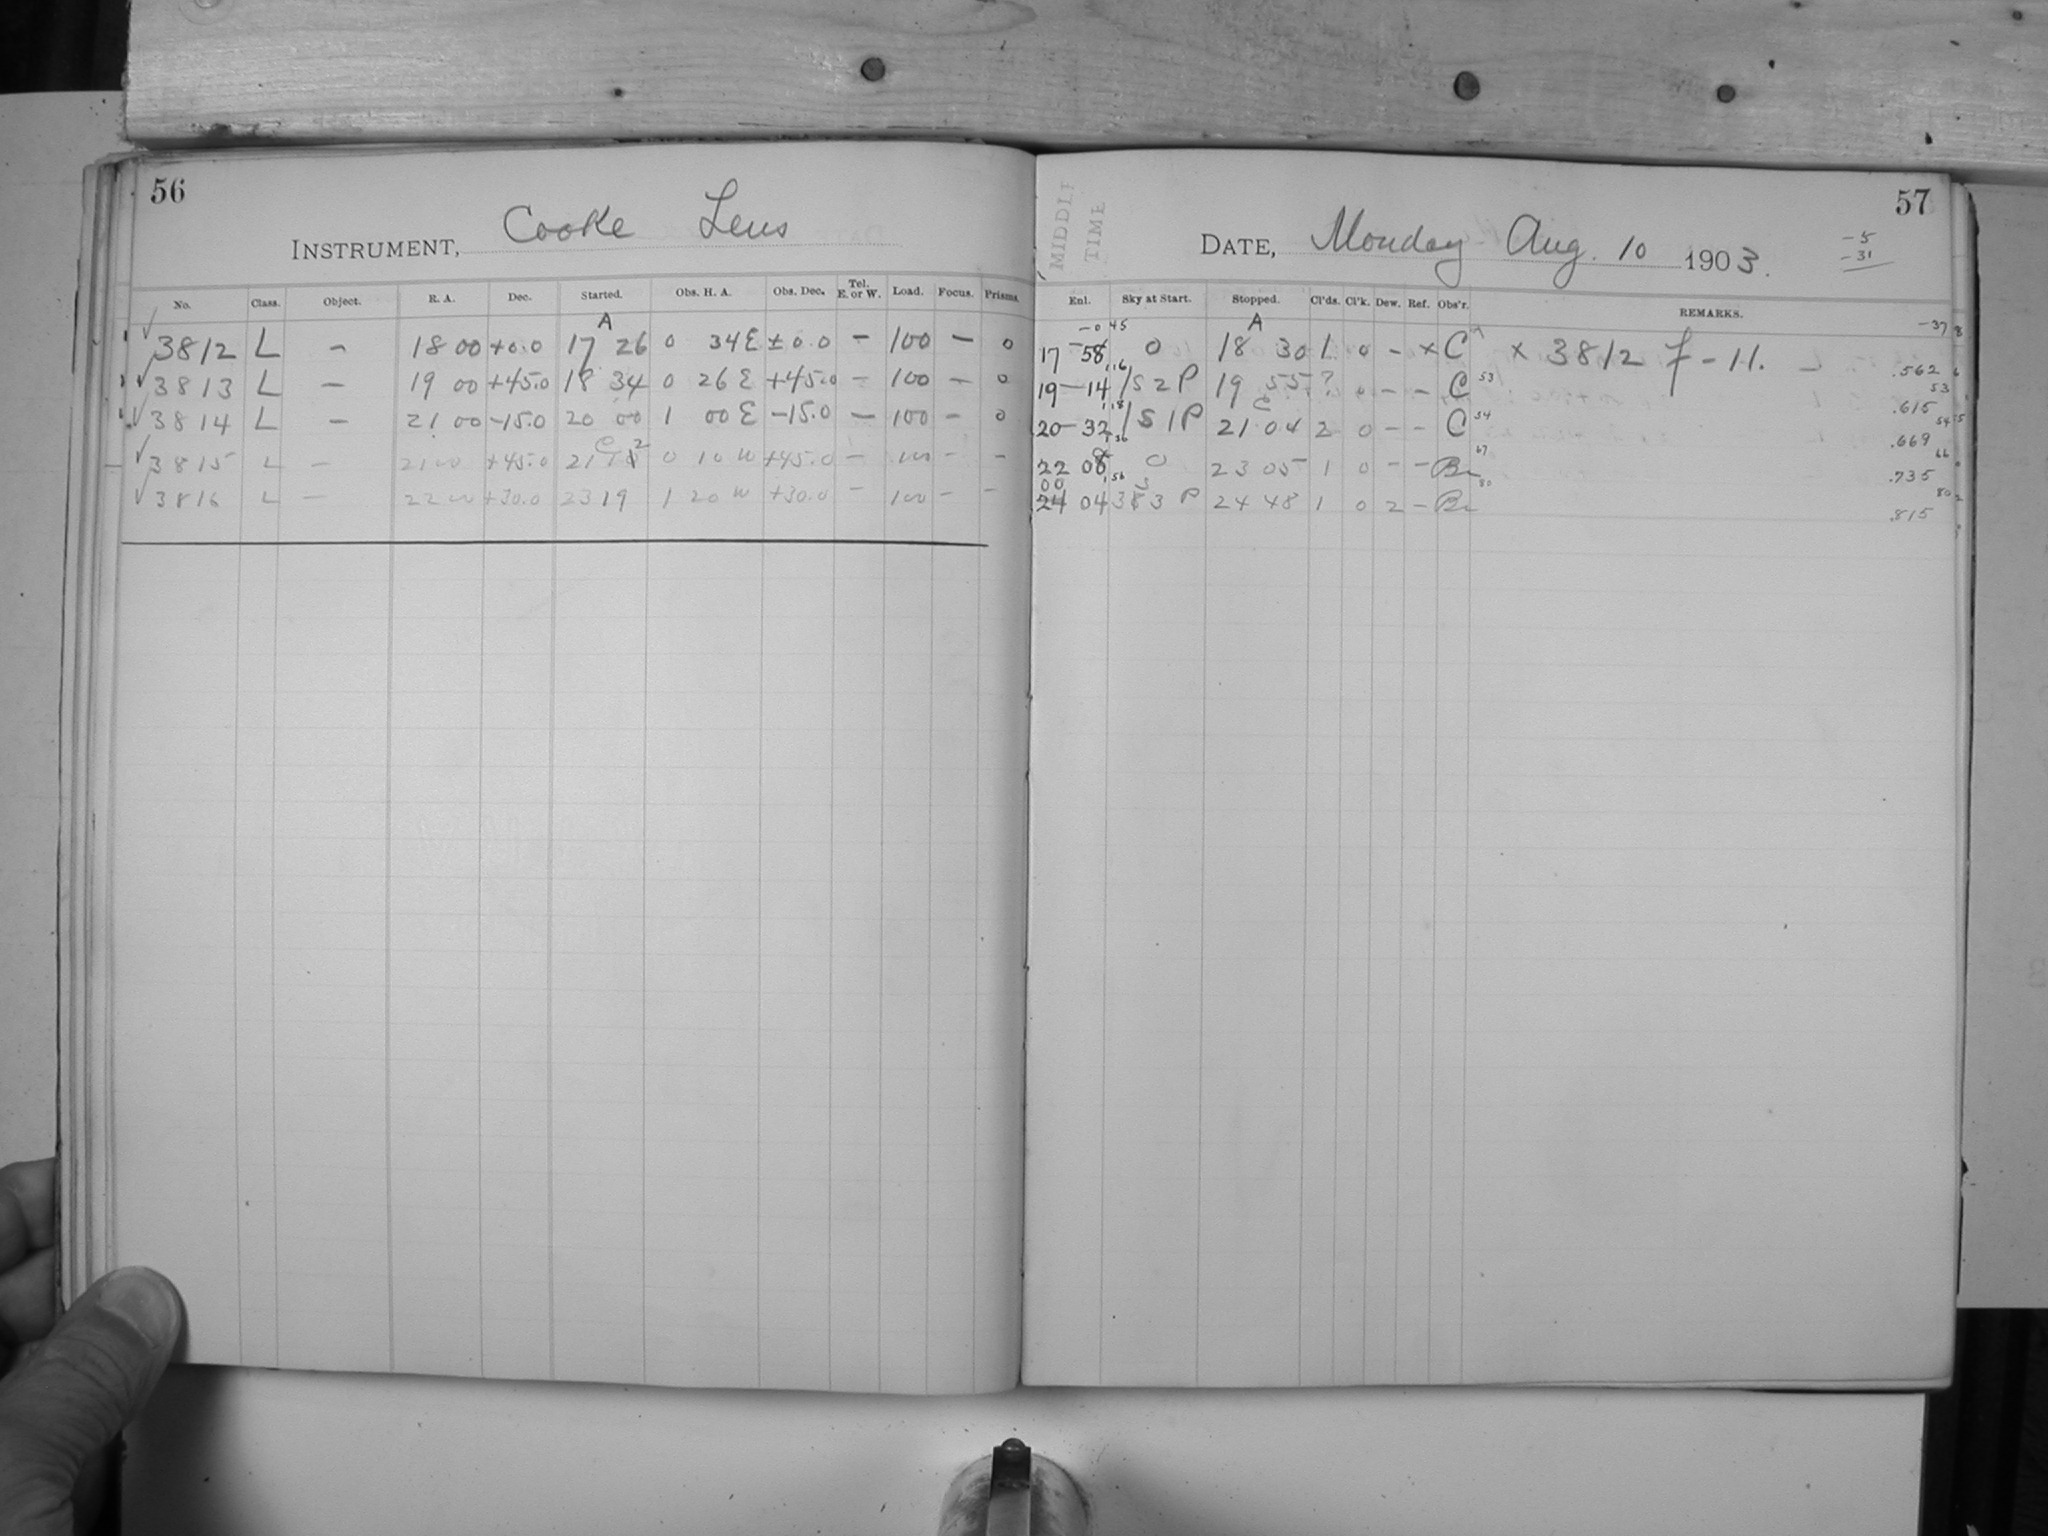 56
INSTRUMENT, Cooke Lens
No. Class. Object. R. A. Dec. Started. Obs. H. A. Obs. Dec. Tel. E. or W. Load. Focus. Prisms.
A
3812 L - 18 00 +0.0 17 26 0 34 E ±0.0 - 100 - 0
3813 L - 19 00 +45.0 18 34 0 26 E +45.0 - 100 - 0
3814 L - 21 00 -15.0 20 00 1 00 E -15.0 - 100 - 0
3815 L - 21 00 +45.0 21 0 10 W +45.0 - 100 - -
3816 L - 22 00 +30.0 23 19 1 20 W +30.0 - 100 - -
57
MIDDLE TIME
DATE, Monday Aug. 10 1903.
-5
-31
Enl. Sky at Start. Stopped. Cl'ds. Cl'k. Dew. Ref. Obs'r. REMARKS.
-0 45 A -37
17-58 0 18 30 1 0 - x C x 3812 f-11. - .562
19-14 1S2P 19 55 ? 0 - - C 53 .615 53
20-32 1S1P 21 04 2 0 - - C 54 .669 54
22 08 0 23 05 1 0 - - Br 67 .735 66
00
24 04 3 P 24 48 1 0 2 - Br 80 .815 80